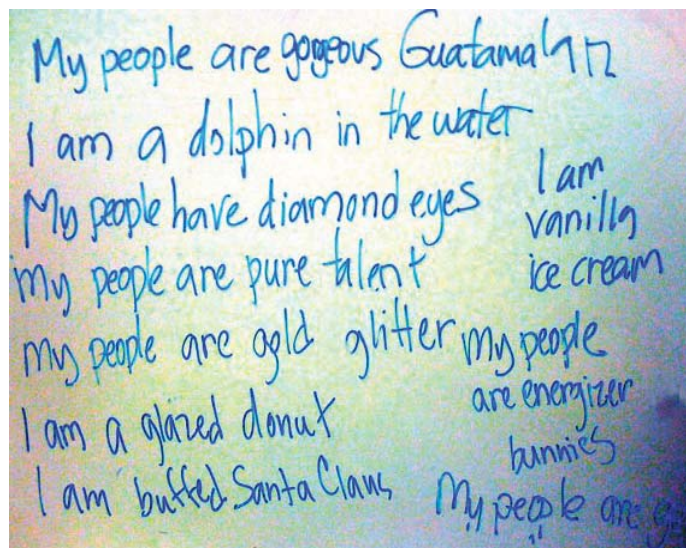 My people are gorgeous Guatamalan
I am a dolphin in the water
My people have diamond eyes
my people are pure talent
my people are gold glitter
I am a glazed donut
I am buffed Santa Claus
I am
vanilla
ice cream
my people
are energizer
bunnies
My people are